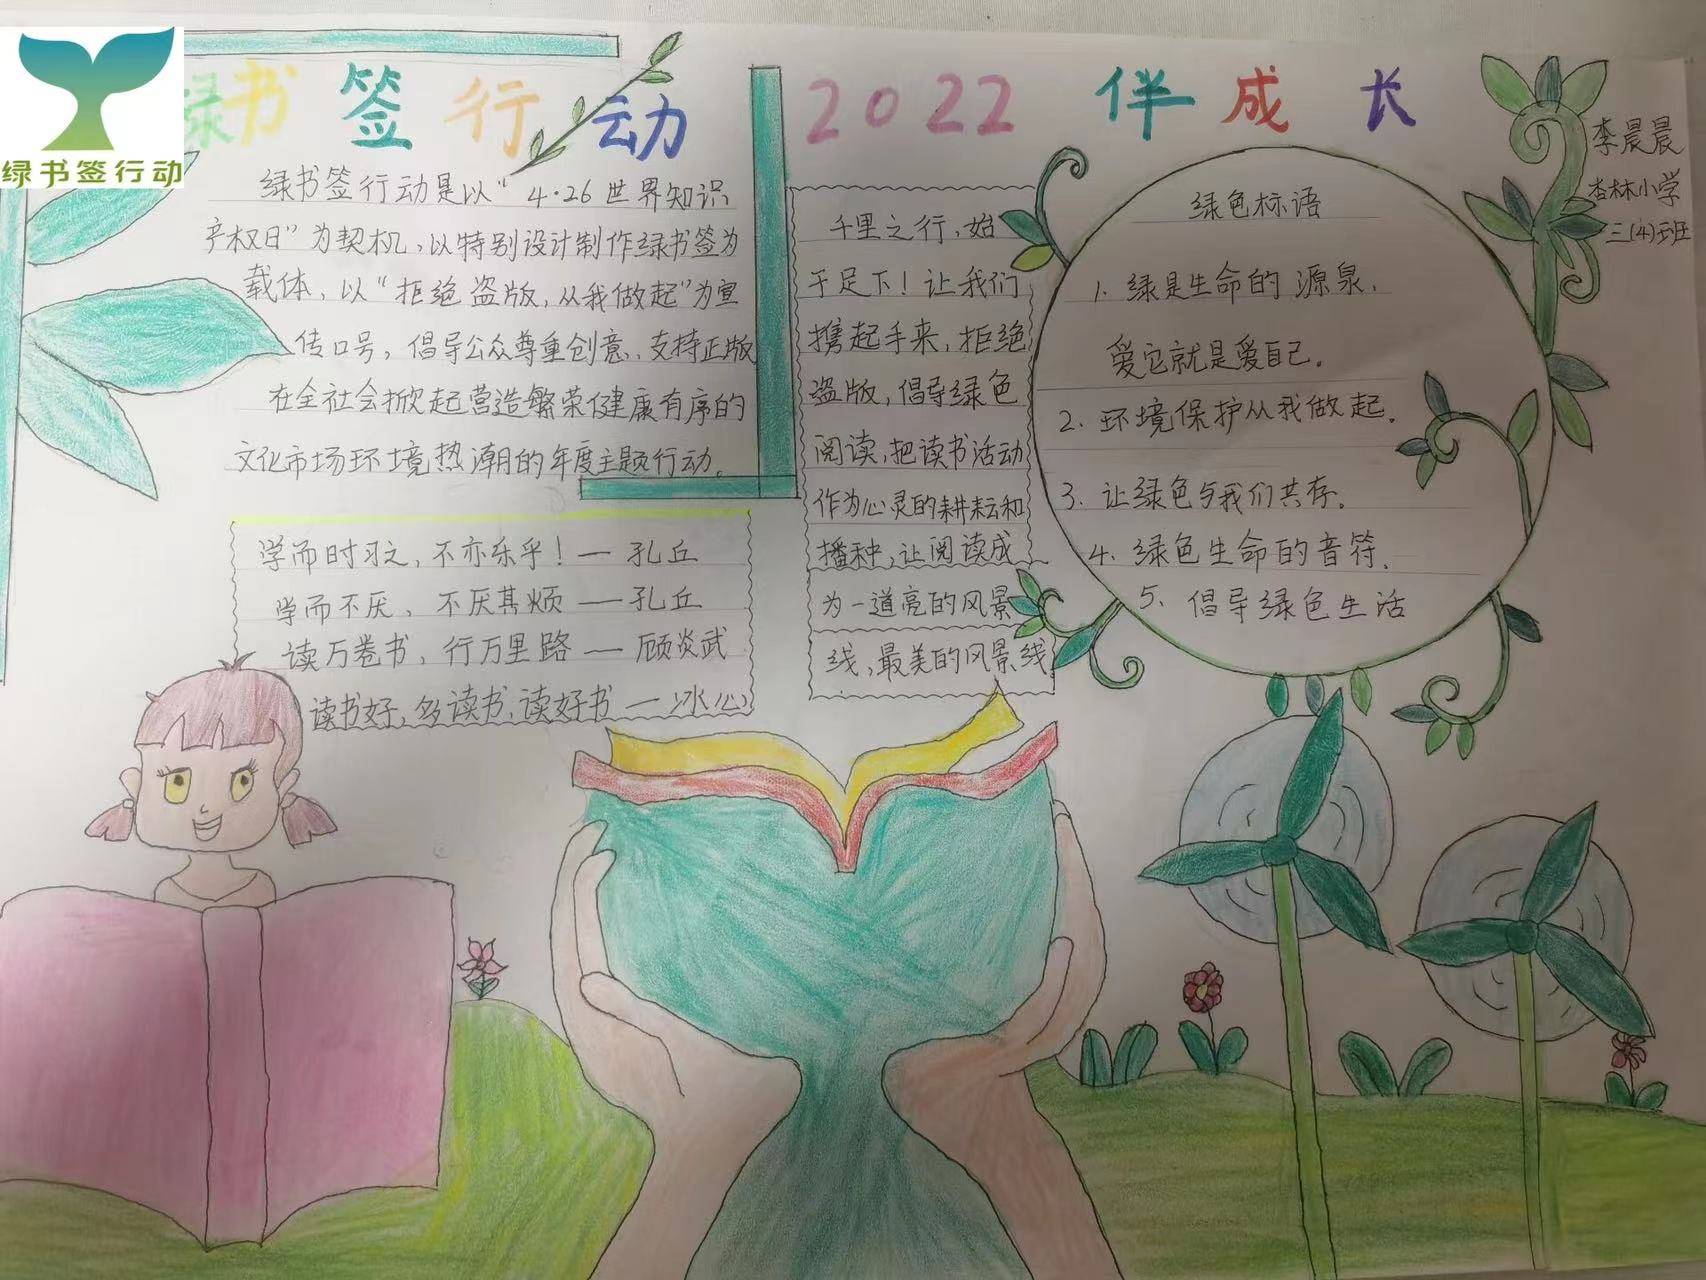 绿书签行动
绿书签行动 2022 伴成长
李晨晨
杏林小学
三(4)班
绿书签行动是以“4·26世界知识
产权日”为契机,以特别设计制作绿书签为
载体,以“拒绝盗版,从我做起”为宣
传口号,倡导公众尊重创意,支持正版
在全社会掀起营造繁荣健康有序的
文化市场环境热潮的年度主题行动。
学而时习之,不亦乐乎!—孔丘
学而不厌,不厌其烦—孔丘
读万卷书,行万里路—顾炎武
读书好,多读书,读好书—冰心
千里之行,始
于足下!让我们
携起手来,拒绝
盗版,倡导绿色
阅读,把读书活动
作为心灵的耕耘和
播种,让阅读成
为一道亮的风景
线,最美的风景线
绿色标语
1、绿是生命的源泉,
爱它就是爱自己。
2、环境保护从我做起。
3、让绿色与我们共存。
4、绿色生命的音符。
5、倡导绿色生活